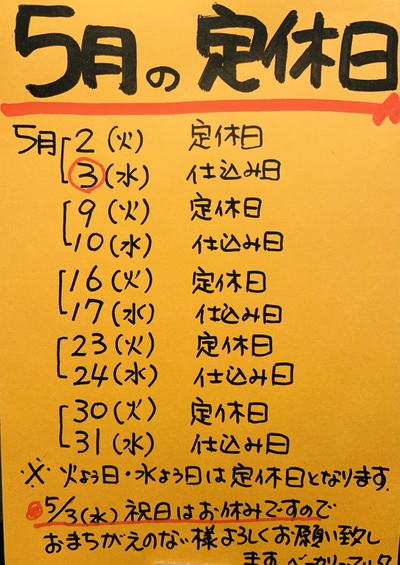 5月の定休日
5月 2(火) 定休日
3(水) 仕込み日
9(火) 定休日
10(水) 仕込み日
16(火) 定休日
17(水) 仕込み日
23(火) 定休日
24(水) 仕込み日
30(火) 定休日
31(水) 仕込み日
※ 火よう日・水よう日は定休日となります。
5/3(水) 祝日はお休みですので
おまちがえのない様よろしくお願い致し
ます ベーカリー